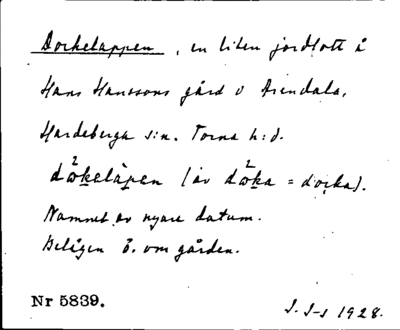 Dockelappen, en liten jordlott å
Hans Hanssons gård i Arendala,
Hardeberga s:n. Torna h:d.
(av = docka).
Namnet av nyare datum.
Belägen ö. om gården.
Nr 5839. 1928.